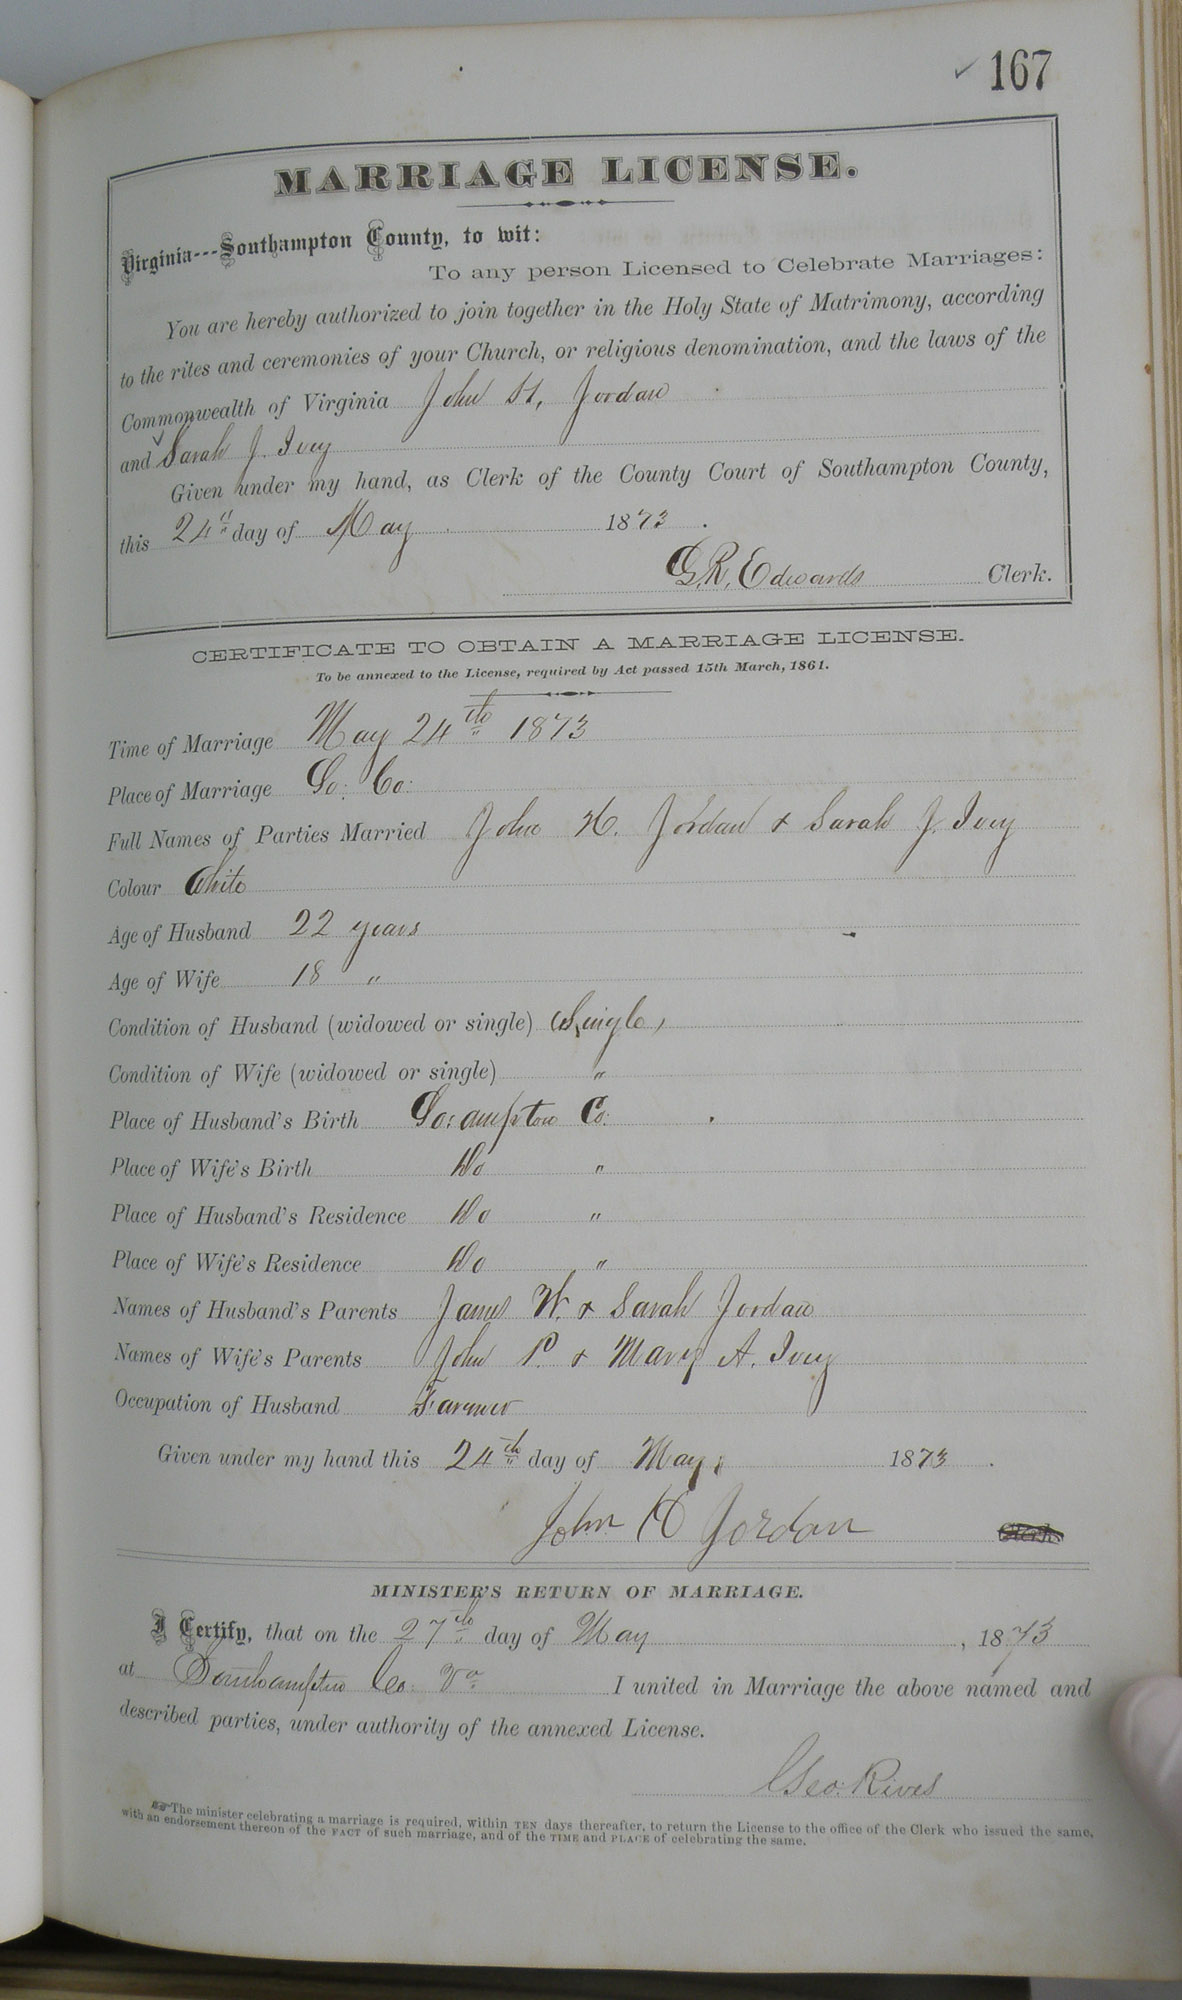 167
MARRIAGE LICENSE.
Virginia---Southampton County, to wit:
To any person Licensed to Celebrate Marriages:
You are hereby authorized to join together in the Holy State of Matrimony, according
to the rites and ceremonies of your Church, or religious denomination, and the laws of the
Commonwealth of Virginia John H. Jordan
and Sarah J. Ivey
Given under my hand, as Clerk of the County Court of Southampton County,
this 24th day of May 1873.
G.R. Edwards Clerk.
CERTIFICATE TO OBTAIN A MARRIAGE LICENSE.
To be annexed to the License, required by Act passed 15th March, 1861.
Time of Marriage May 24th 1873
Place of Marriage So: Co:
Full Names of Parties Married John H. Jordan & Sarah J. Ivey
Colour White
Age of Husband 22 years
Age of Wife 18 "
Condition of Husband (widowed or single) Single,
Condition of Wife (widowed or single) "
Place of Husband's Birth So:ampton Co:
Place of Wife's Birth Do "
Place of Husband's Residence Do "
Place of Wife's Residence Do "
Names of Husband's Parents James W. & Sarah Jordan
Names of Wife's Parents John P. & Mary A. Ivey
Occupation of Husband Farmer
Given under my hand this 24th day of May, 1873.
John H Jordan Clerk
MINISTER'S RETURN OF MARRIAGE.
I Certify, that on the 27th day of May, 1873
at Southampton Co: Va I united in Marriage the above named and
described parties, under authority of the annexed License.
Geo: Rives
The minister celebrating a marriage is required, within TEN days thereafter, to return the License to the office of the Clerk who issued the same,
with an endorsement thereon of the FACT of such marriage, and of the TIME and PLACE of celebrating the same.